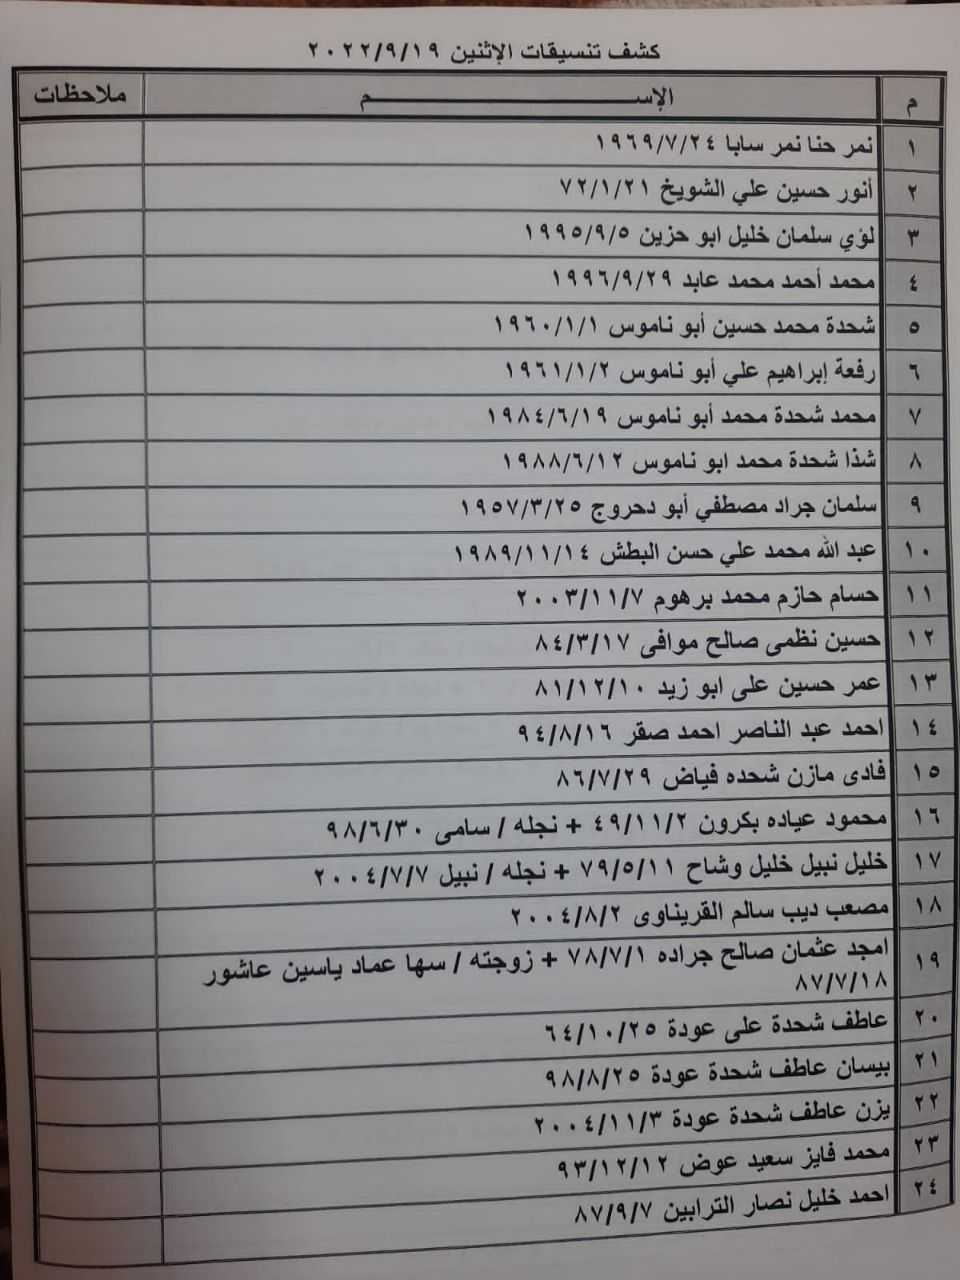 كشف تنسيقات الإثنين ٢٠٢٢/٩/١٩
م الإســـــــــــــــــــم ملاحظات
١ نمر حنا نمر سابا ١٩٦٩/٧/٢٤
٢ أنور حسين علي الشويخ ٧٢/١/٢١
٣ لؤي سلمان خليل ابو حزين ١٩٩٥/٩/٥
٤ محمد أحمد محمد عابد ١٩٩٦/٩/٢٩
٥ شحدة محمد حسين أبو ناموس ١٩٦٠/١/١
٦ رفعة إبراهيم علي أبو ناموس ١٩٦١/١/٢
٧ محمد شحدة محمد أبو ناموس ١٩٨٤/٦/١٩
٨ شذا شحدة محمد ابو ناموس ١٩٨٨/٦/١٢
٩ سلمان جراد مصطفي أبو دحروج ١٩٥٧/٣/٢٥
١٠ عبد الله محمد علي حسن البطش ١٩٨٩/١١/١٤
١١ حسام حازم محمد برهوم ٢٠٠٣/١١/٧
١٢ حسين نظمى صالح موافى ٨٤/٣/١٧
١٣ عمر حسين على ابو زيد ٨١/١٢/١٠
١٤ احمد عبد الناصر احمد صقر ٩٤/٨/١٦
١٥ فادى مازن شحده فياض ٨٦/٧/٢٩
١٦ محمود عياده بكرون ٤٩/١١/٢ + نجله / سامى ٩٨/٦/٣٠
١٧ خليل نبيل خليل وشاح ٧٩/٥/١١ + نجله / نبيل ٢٠٠٤/٧/٧
١٨ مصعب ديب سالم القريناوى ٢٠٠٤/٨/٢
١٩ امجد عثمان صالح جراده ٧٨/٧/١ + زوجته / سها عماد ياسين عاشور
٨٧/٧/١٨
٢٠ عاطف شحدة على عودة ٦٤/١٠/٢٥
٢١ بيسان عاطف شحدة عودة ٩٨/٨/٢٥
٢٢ يزن عاطف شحدة عودة ٢٠٠٤/١١/٣
٢٣ محمد فايز سعيد عوض ٩٣/١٢/١٢
٢٤ احمد خليل نصار الترابين ٨٧/٩/٧